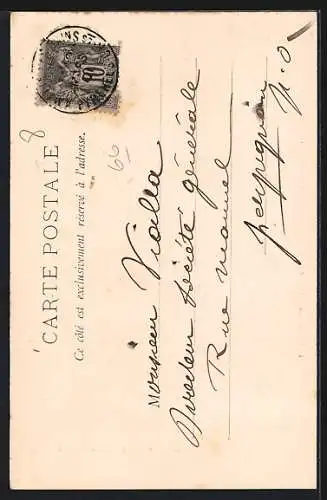 CARTE POSTALE
Ce côté est exclusivement réservé à l'adresse.
8
66
Monsieur Vialla
Directeur Société générale
Rue Manuel
Perpignan
P. O
10